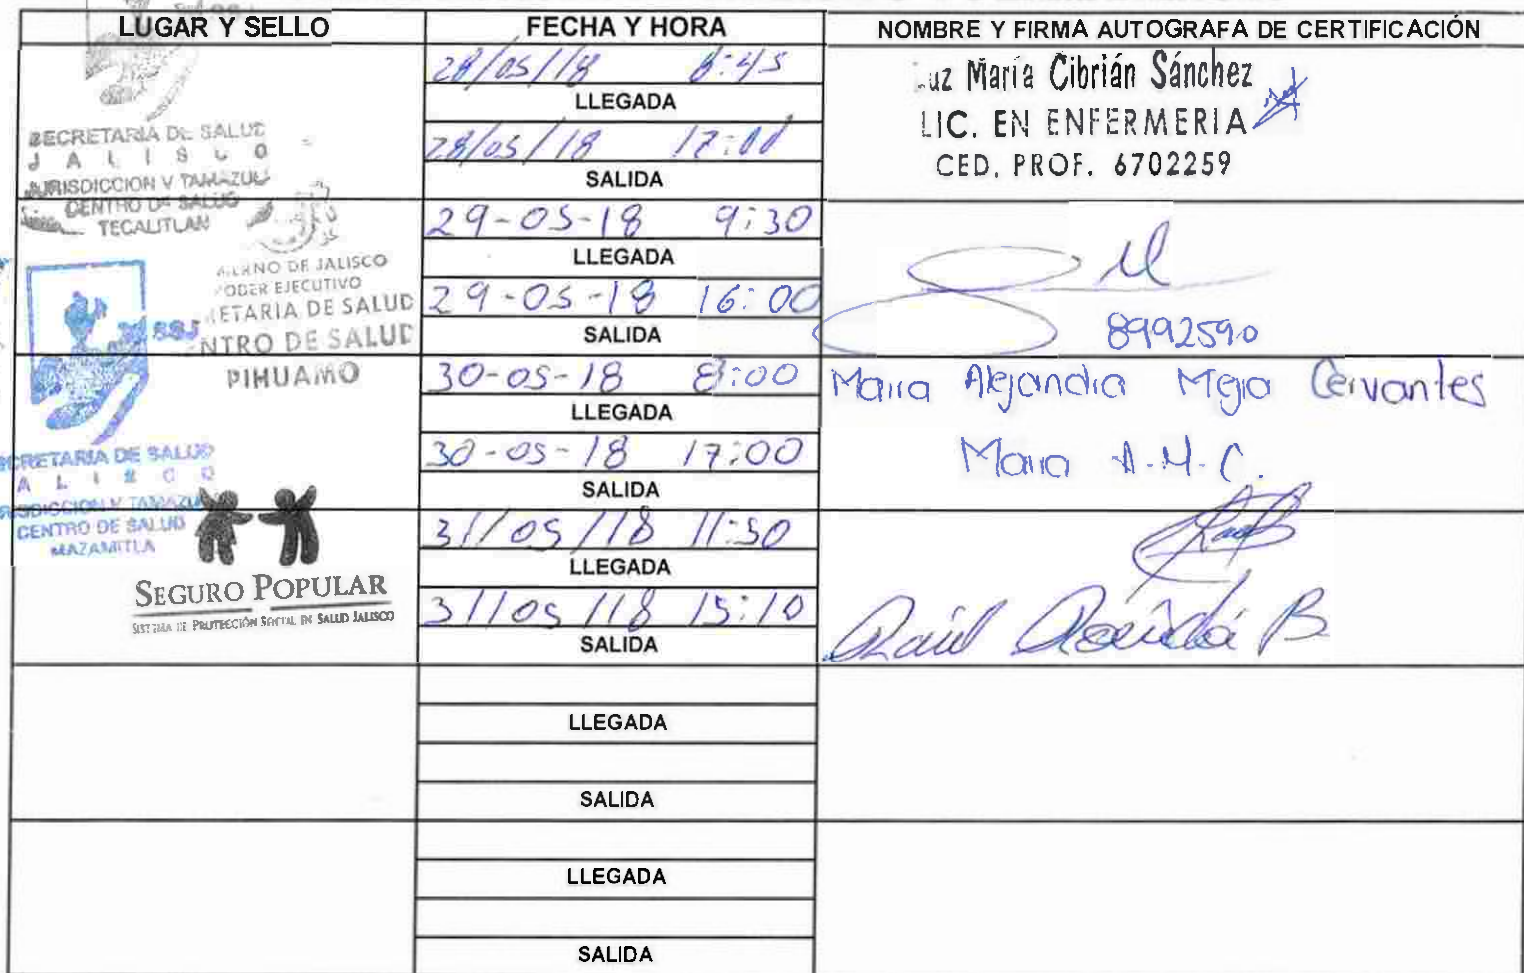 LUGAR Y SELLO
FECHA Y HORA
NOMBRE Y FIRMA AUTOGRAFA DE CERTIFICACIÓN
SECRETARIA DE SALUD
JALISCO
JURISDICCION V TAMAZULA
CENTRO DE SALUD
TECALITLAN
28/05/18 8:45
LLEGADA
28/05/18 17:00
SALIDA
María Cibrián Sánchez
LIC. EN ENFERMERIA
CED. PROF. 6702259
DE JALISCO
PODER EJECUTIVO
ETARIA DE SALUD
NTRO DE SALUD
PIHUAMO
29-05-18 9:30
LLEGADA
29-05-18 16:00
SALIDA
8992590
SSJ
CRETARIA DE SALUD
ALISCO
RISDICCION V TAMAZU
CENTRO DE SALUD
MAZAMITLA
30-05-18 8:00
LLEGADA
30-05-18 17:00
SALIDA
Maira Alejandra Mejia Cervantes
Maira A.M.C.
SEGURO POPULAR
SISTEMA DE PROTECCIÓN SOCIAL EN SALUD JALISCO
31/05/18 11:50
LLEGADA
31/05/18 15:10
SALIDA
Raúl B
LLEGADA
SALIDA
LLEGADA
SALIDA